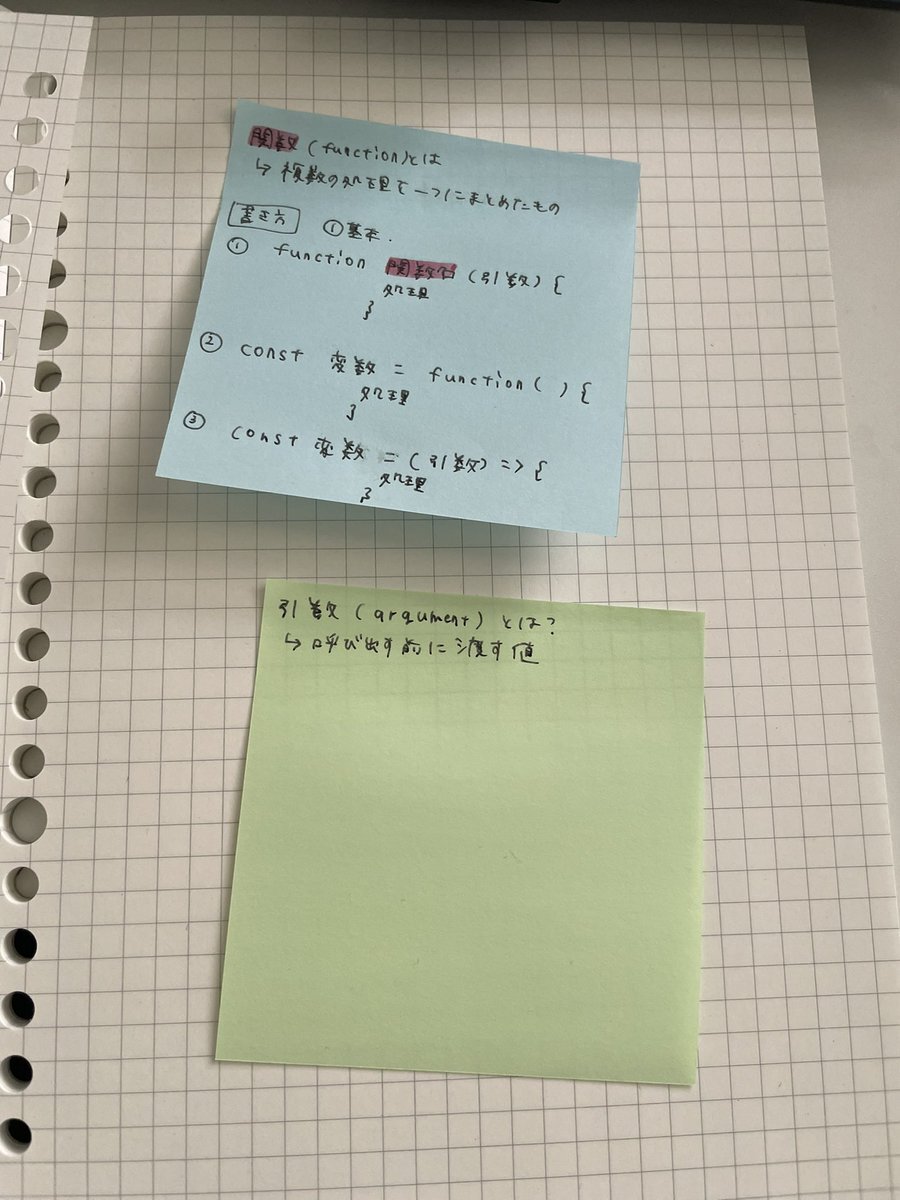 関数(function)とは
↳ 複数の処理を一つにまとめたもの
書き方 ①基本.
① function 関数名 (引数) {
処理
}
② const 変数 = function ( ) {
処理
}
③ const 変数 = (引数) => {
処理
}
引数 (argument) とは?
↳ 呼び出す前に渡す値